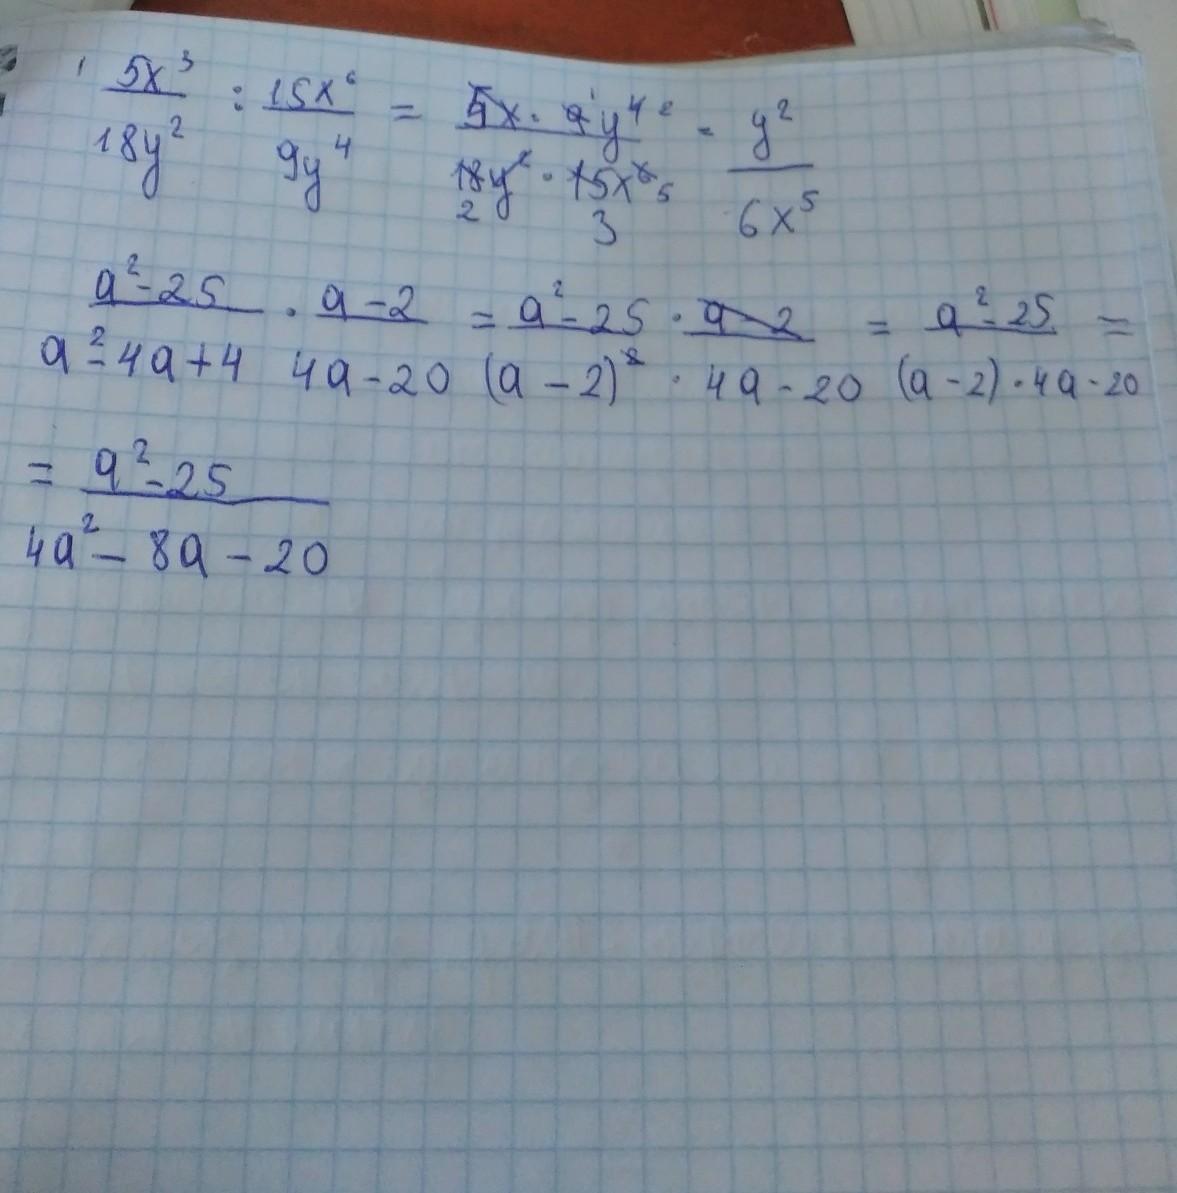 5x³/18y² : 15x⁶/9y⁴ = 5x · 9¹y⁴ ²/18y² · 15x⁶ 2 3 5 = y²/6x⁵
a²-25/a²-4a+4 · a-2/4a-20 = a²-25 · a-2/(a-2)² · 4a-20 = a²-25/(a-2)·4a-20 =
= a²-25/4a²-8a-20